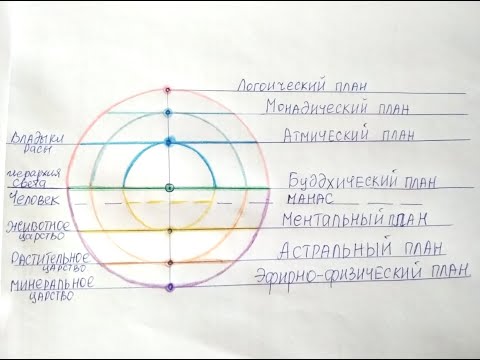 Логоический план
Монадический план
Владыки
расы
Атмический план
иерархия
света
Буддхический план
Человек
Манас
Животное
царство
Ментальный план
Растительное
царство
Астральный план
Минеральное
царство
Эфирно-физический план